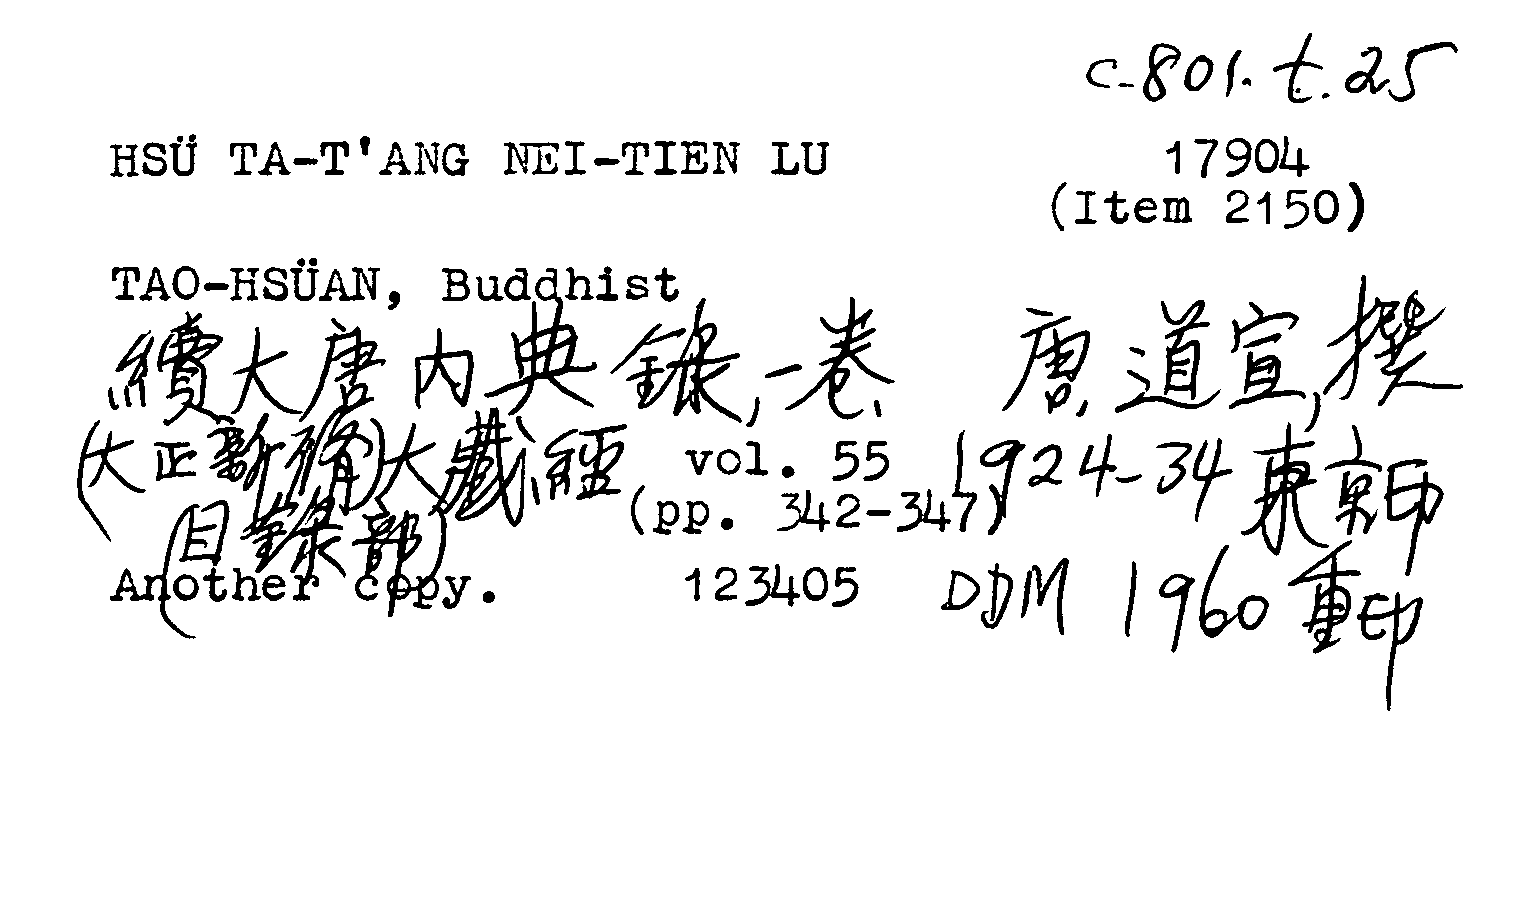 C.801.t.25
HSÜ TA-T'ANG NEI-TIEN LU 17904
(Item 2150)
TAO-HSÜAN, Buddhist
續大唐内典錄,一卷、 唐、道宣,撰
(大正新脩)大藏經 vol. 55 1924-34 東京印
(目錄部) (pp. 342-347)
Another copy. 123405 DDM 1960 重印